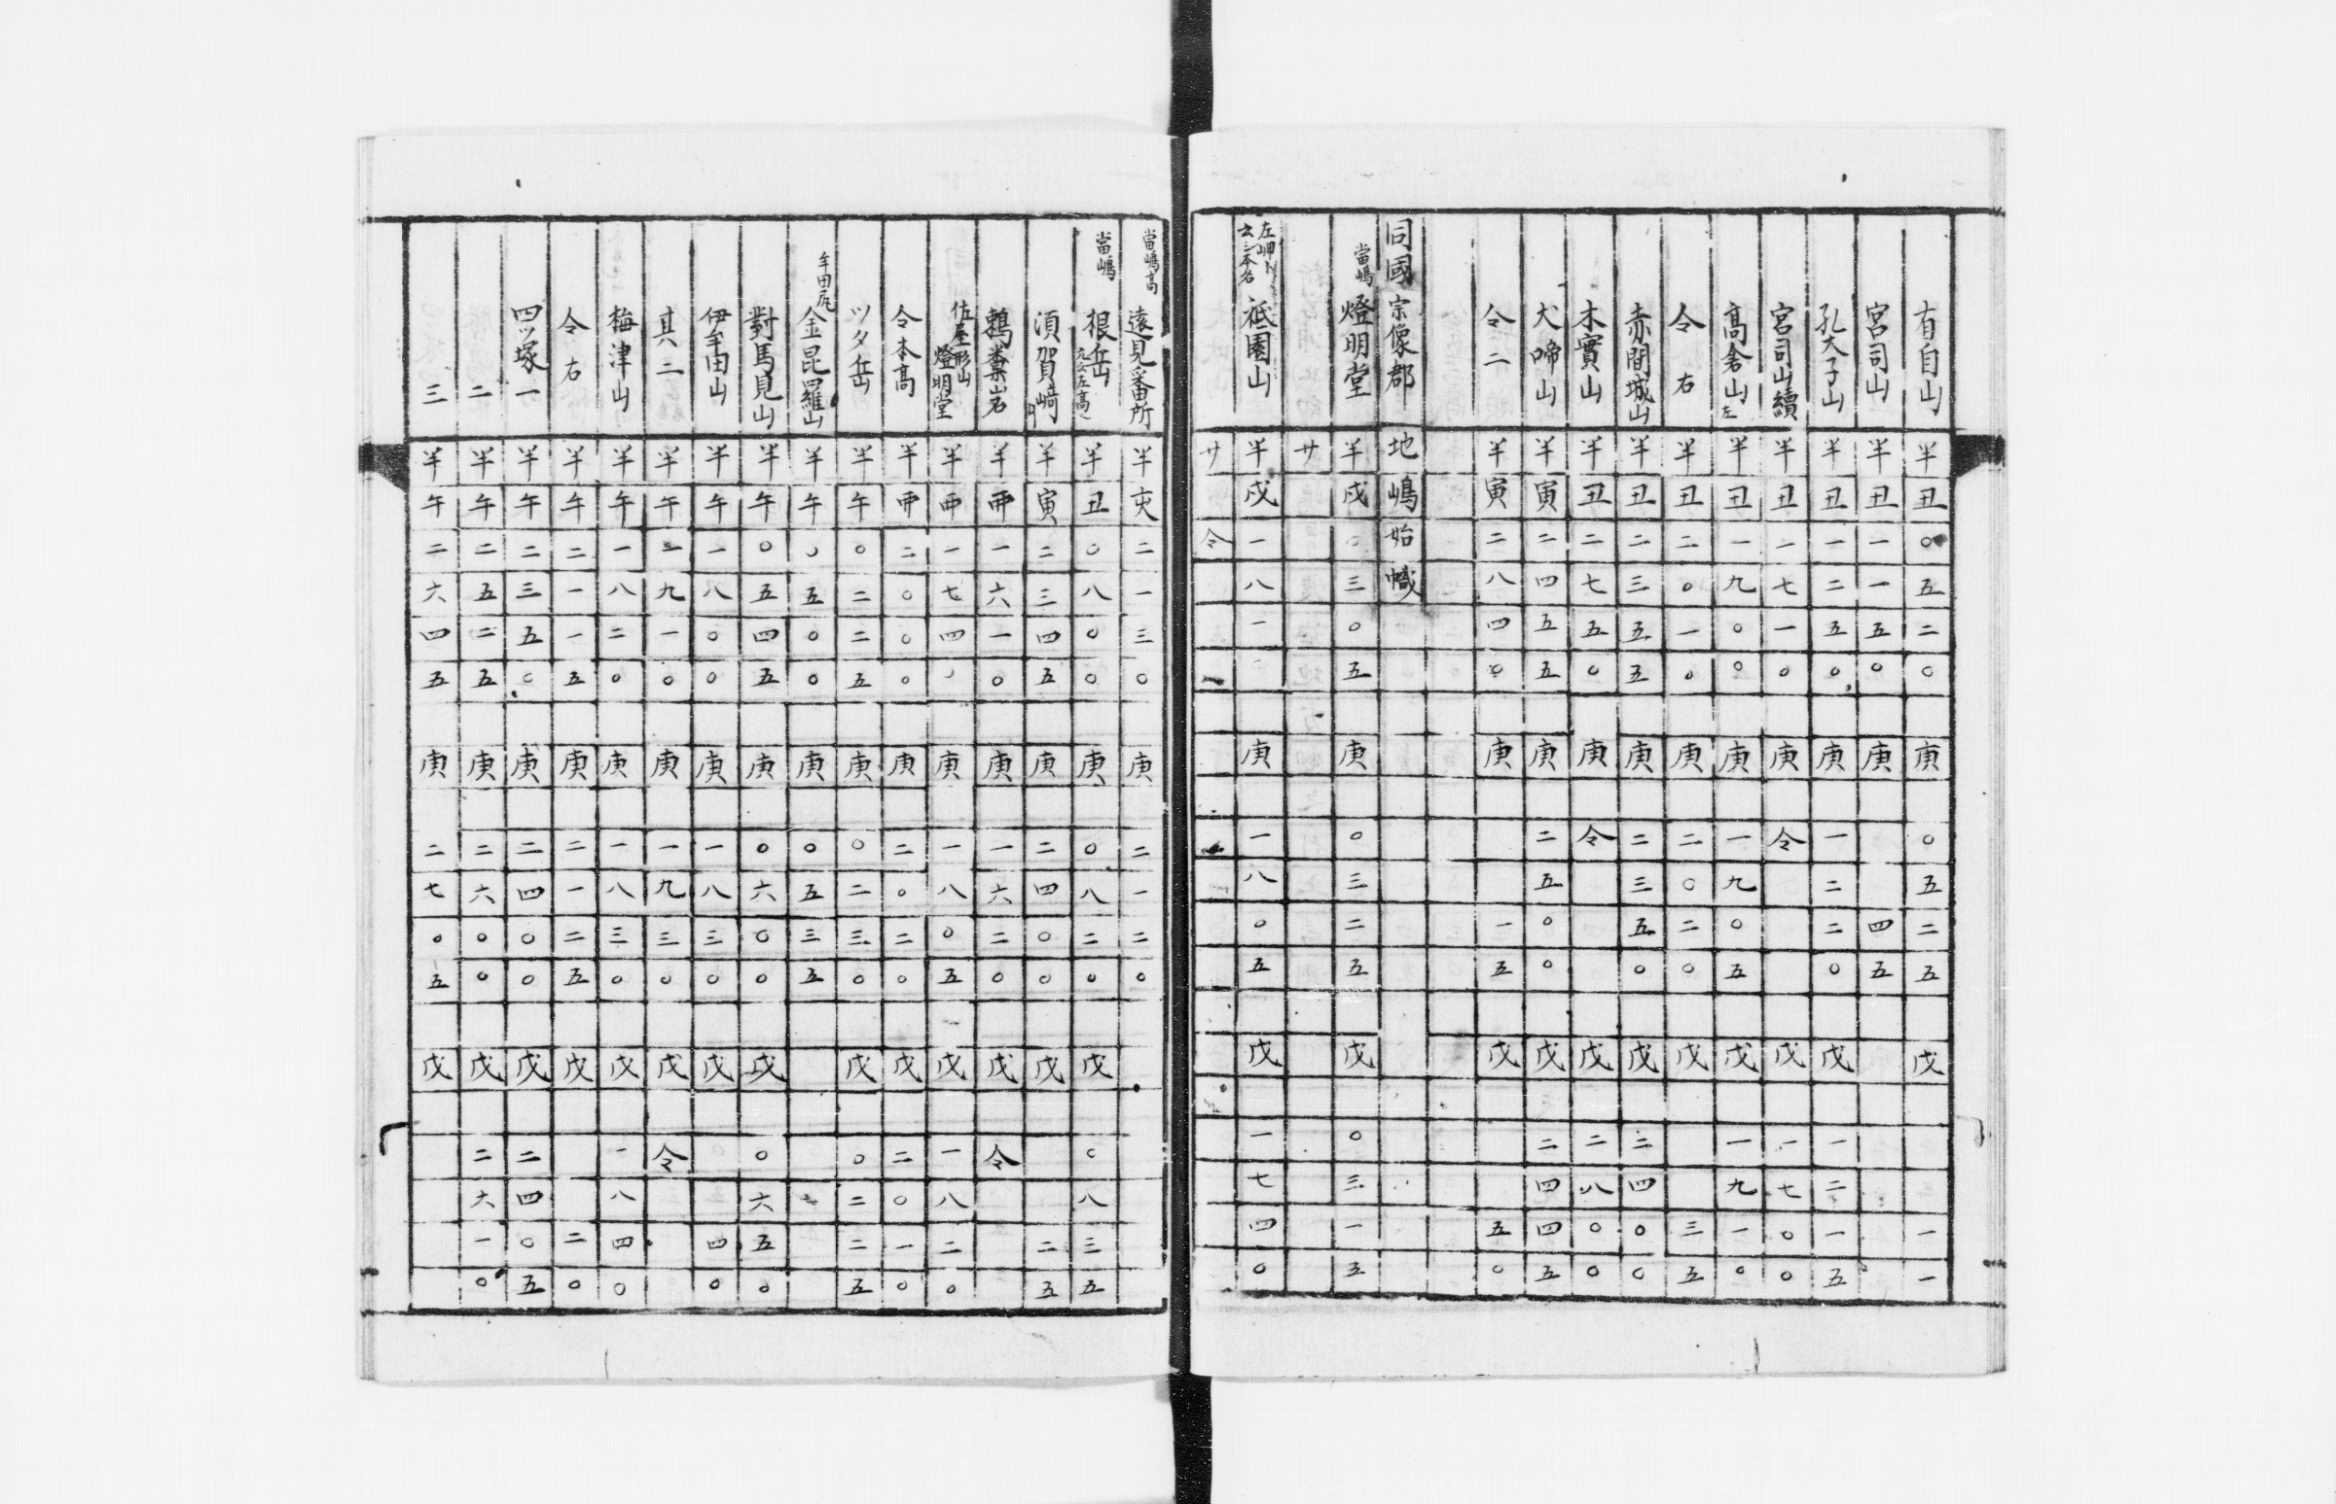 有自山 半 丑 〇 五 二 〇 庚 〇 五 二 五 戊 一 一
宮司山 半 丑 一 一 五 〇 庚 四 五
孔大子山 半 丑 一 二 五 〇 庚 一 二 二 〇 戊 一 二 一 五
宮司山續 半 丑 一 七 一 〇 庚 仝 戊 一 七 〇 〇
髙倉山左 半 丑 一 九 〇 〇 庚 一 九 〇 五 戊 一 九 一 〇
仝 右 半 丑 二 〇 一 〇 庚 二 〇 二 〇 戊 三 五
赤間城山 半 丑 二 三 五 五 庚 二 三 五 〇 戊 二 四 〇 〇
木實山 半 丑 二 七 五 〇 庚 仝 戊 二 八 〇 〇
犬啼山 半 寅 二 四 五 五 庚 二 五 〇 〇 戊 二 四 四 五
仝 二 半 寅 二 八 四 〇 庚 一 五 戊 五 〇
同國宗像郡 地嶋始幟
當嶋 燈明堂 半 戌 〇 三 〇 五 庚 〇 三 二 五 戊 〇 三 一 五
サ
祗園山 半 戌 一 八 一 庚 一 八 〇 五 戊 一 七 四 〇
サ 仝
當嶋髙 遠見番所 半 亥 二 一 三 〇 庚 二 一 二 〇
當嶋 根岳 半 丑 〇 八 〇 〇 庚 〇 八 二 〇 戊 〇 八 三 五
湏賀﨑 半 寅 二 三 四 五 庚 二 四 〇 〇 戊 二 五
鵜糞岩 半 一 六 一 〇 庚 一 六 二 〇 戊 仝
佐屋形山 燈明堂 半 一 七 四 〇 庚 一 八 〇 五 戊 一 八 二 〇
仝本髙 半 二 〇 〇 〇 庚 二 〇 二 〇 戊 二 〇 一 〇
ツタ岳 半 午 〇 二 二 五 庚 〇 二 三 〇 戊 〇 二 二 五
牟田尻 金昆羅山 半 午 〇 五 〇 〇 庚 〇 五 三 五
對馬見山 半 午 〇 五 四 五 庚 〇 六 〇 〇 戊 〇 六 五 〇
伊牟田山 半 午 一 八 〇 〇 庚 一 八 三 〇 戊 四 〇
其二 半 午 一 九 一 〇 庚 一 九 三 〇 戊 仝
梅津山 半 午 一 八 二 〇 庚 一 八 三 〇 戊 一 八 四 〇
仝 右 半 午 二 一 一 五 庚 二 一 二 五 戊 二 〇
四ツ塚一 半 午 二 三 五 〇 庚 二 四 〇 〇 戊 二 四 〇 五
二 半 午 二 五 二 五 庚 二 六 〇 〇 戊 二 六 一 〇
三 半 午 二 六 四 五 庚 二 七 〇 五 戊